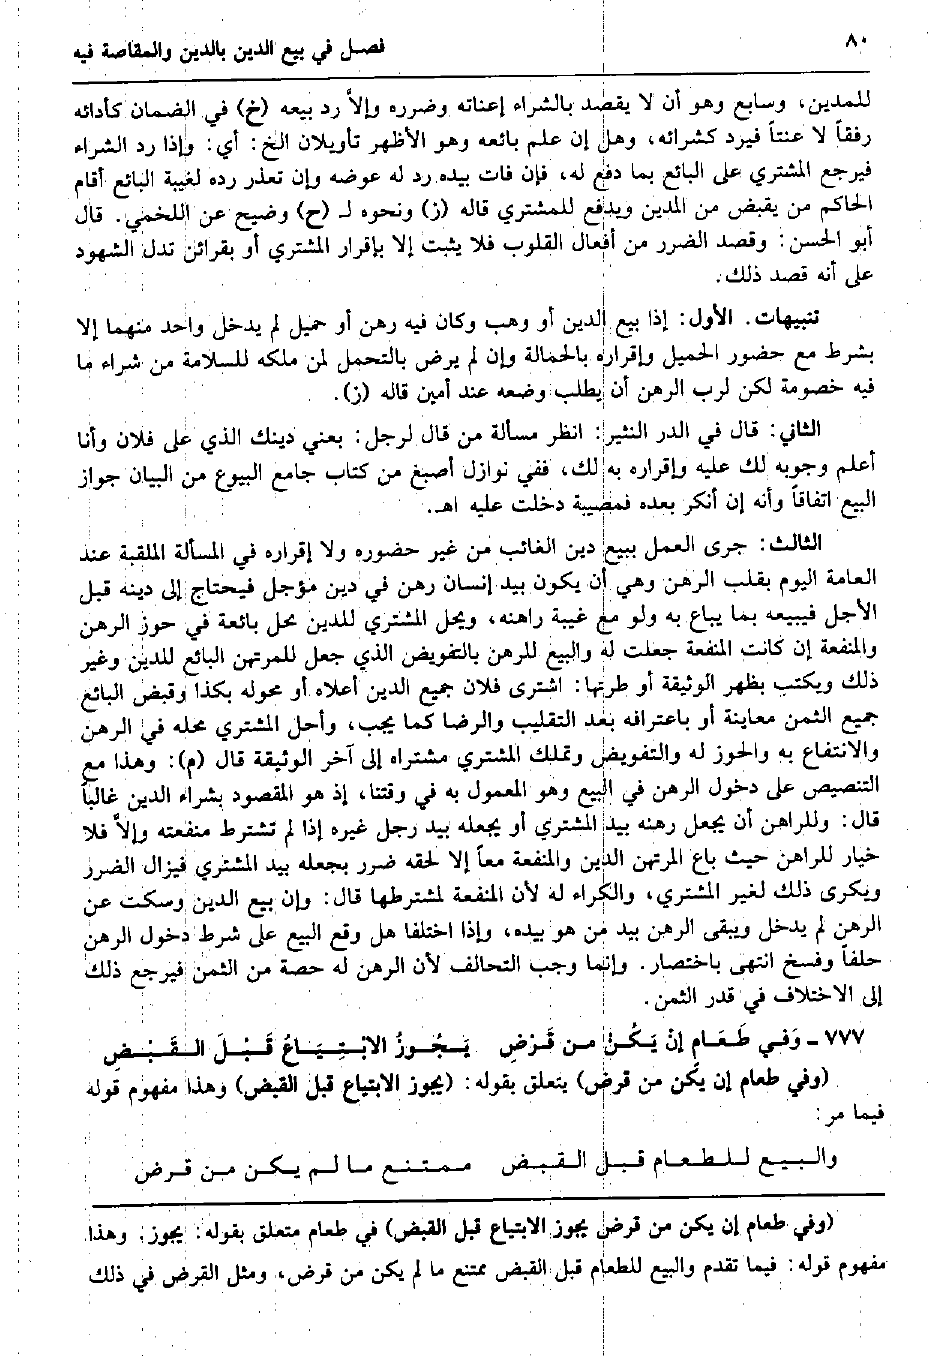 ٨٠
فصل في بيع الدين بالدين والمقاصة فيه
للمدين، وسابع وهو أن لا يقصد بالشراء إعناته وضرره وإلاَّ رد بيعه (خ) في الضمان كأدائه
رفقاً لا عنتاً فيرد كشرائه، وهل إن علم بائعه وهو الأظهر تأويلان الخ: أي: وإذا رد الشراء
فيرجع المشتري على البائع بما دفع له، فإن فات بيده رد له عوضه وإن تعذر رده لغيبة البائع أقام
الحاكم من يقبض من المدين ويدفع للمشتري قاله (ز) ونحوه لـ (ح) وضيح عن اللخمي. قال
أبو الحسن: وقصد الضرر من أفعال القلوب فلا يثبت إلا بإقرار المشتري أو بقرائن تدل الشهود
على أنه قصد ذلك.
تنبيهات. الأول: إذا بيع الدين أو وهب وكان فيه رهن أو حميل لم يدخل واحد منهما إلا
بشرط مع حضور الحميل وإقراره بالحمالة وإن لم يرض بالتحمل لمن ملكه للسلامة من شراء ما
فيه خصومة لكن لرب الرهن أن يطلب وضعه عند أمين قاله (ز).
الثاني: قال في الدر النثير: انظر مسألة من قال لرجل: بعني دينك الذي على فلان وأنا
أعلم وجوبه لك عليه وإقراره به لك، ففي نوازل أصبغ من كتاب جامع البيوع من البيان جواز
البيع اتفاقاً وأنه إن أنكر بعده فمصيبة دخلت عليه اهـ.
الثالث: جرى العمل ببيع دين الغائب من غير حضوره ولا إقراره في المسألة الملقبة عند
العامة اليوم بقلب الرهن وهي أن يكون بيد إنسان رهن في دين مؤجل فيحتاج إلى دينه قبل
الأجل فيبيعه بما يباع به ولو مع غيبة راهنه، ويحل المشتري للدين محل بائعة في حوز الرهن
والمنفعة إن كانت المنفعة جعلت له والبيع للرهن بالتفويض الذي جعل للمرتهن البائع للدين وغير
ذلك ويكتب بظهر الوثيقة أو طرتها: اشترى فلان جميع الدين أعلاه أو محوله بكذا وقبض البائع
جميع الثمن معاينة أو باعترافه بعد التقليب والرضا كما يجب، وأحل المشتري محله في الرهن
والانتفاع به والحوز له والتفويض وتملك المشتري مشتراه إلى آخر الوثيقة قال (م): وهذا مع
التنصيص على دخول الرهن في البيع وهو المعمول به في وقتنا، إذ هو المقصود بشراء الدين غالباً
قال: وللراهن أن يجعل رهنه بيد المشتري أو يجعله بيد رجل غيره إذا لم تشترط منفعته وإلاَّ فلا
خيار للراهن حيث باع المرتهن الدين والمنفعة معاً إلا لحقه ضرر بجعله بيد المشتري فيزال الضرر
ويكرى ذلك لغير المشتري، والكراء له لأن المنفعة لمشترطها قال: وإن بيع الدين وسكت عن
الرهن لم يدخل ويبقى الرهن بيد من هو بيده، وإذا اختلفا هل وقع البيع على شرط دخول الرهن
حلفاً وفسخ انتهى باختصار. وإنما وجب التحالف لأن الرهن له حصة من الثمن فيرجع ذلك
إلى الاختلاف في قدر الثمن.
٧٧٧ ـ وَفي طَعَامٍ إنْ يَكُنْ من قَرْضِ يَجُوزُ الابْتِيَاعُ قَبْلَ القَبْضِ
(وفي طعام إن يكن من قرض) يتعلق بقوله: (يجوز الابتياع قبل القبض) وهذا مفهوم قوله
فيما مر:
والبيع للطعام قبل القبض ممتنع ما لم يكن من قرض
(وفي طعام إن يكن من قرض يجوز الابتياع قبل القبض) في طعام متعلق بقوله: يجوز: وهذا
مفهوم قوله: فيما تقدم والبيع للطعام قبل القبض ممتنع ما لم يكن من قرض، ومثل القرض في ذلك